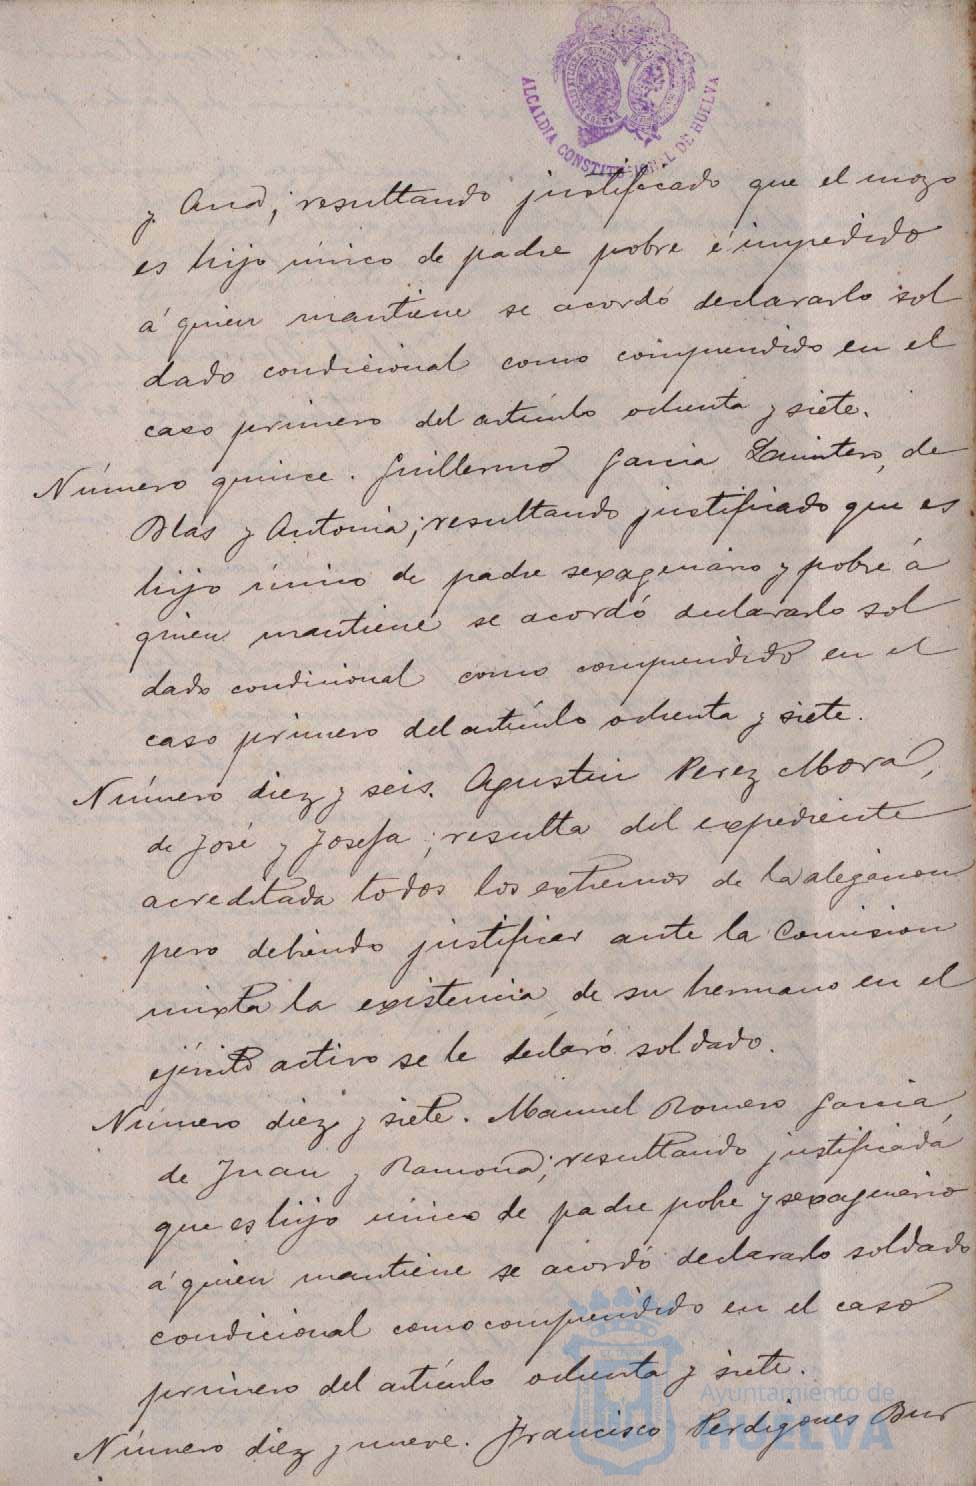 ALCALDIA CONSTITUCIONAL DE HUELVA
y Ana; resultando justificado que el mozo
es hijo único de padre pobre é impedido
á quien mantiene se acordó declararlo sol
dado condicional como comprendido en el
caso primero del artículo ochenta y siete.
Número quince. Guillermo Garcia Quintero, de
Blas y Antonia; resultando justificado que es
hijo único de padre sexagenario y pobre á
quien mantiene se acordó declararlo sol
dado condicional como comprendido en el
caso primero del artículo ochenta y siete.
Número diez y seis. Agustin Perez Mora,
de José y Josefa; resulta del expediente
acreditada todos los extremos de la alegacion
pero debiendo justificar ante la Comision
mixta la existencia de su hermano en el
ejército activo se le declaró soldado.
Número diez y siete. Manuel Romero Garcia,
de Juan y Ramona; resultando justificada
que es hijo unico de padre pobre y sexagenario
á quien mantiene se acordó declararlo soldado
condicional como comprendido en el caso
primero del artículo ochenta y siete.
Número diez y nueve. Francisco Perdigones Bur
Ayuntamiento de
HUELVA